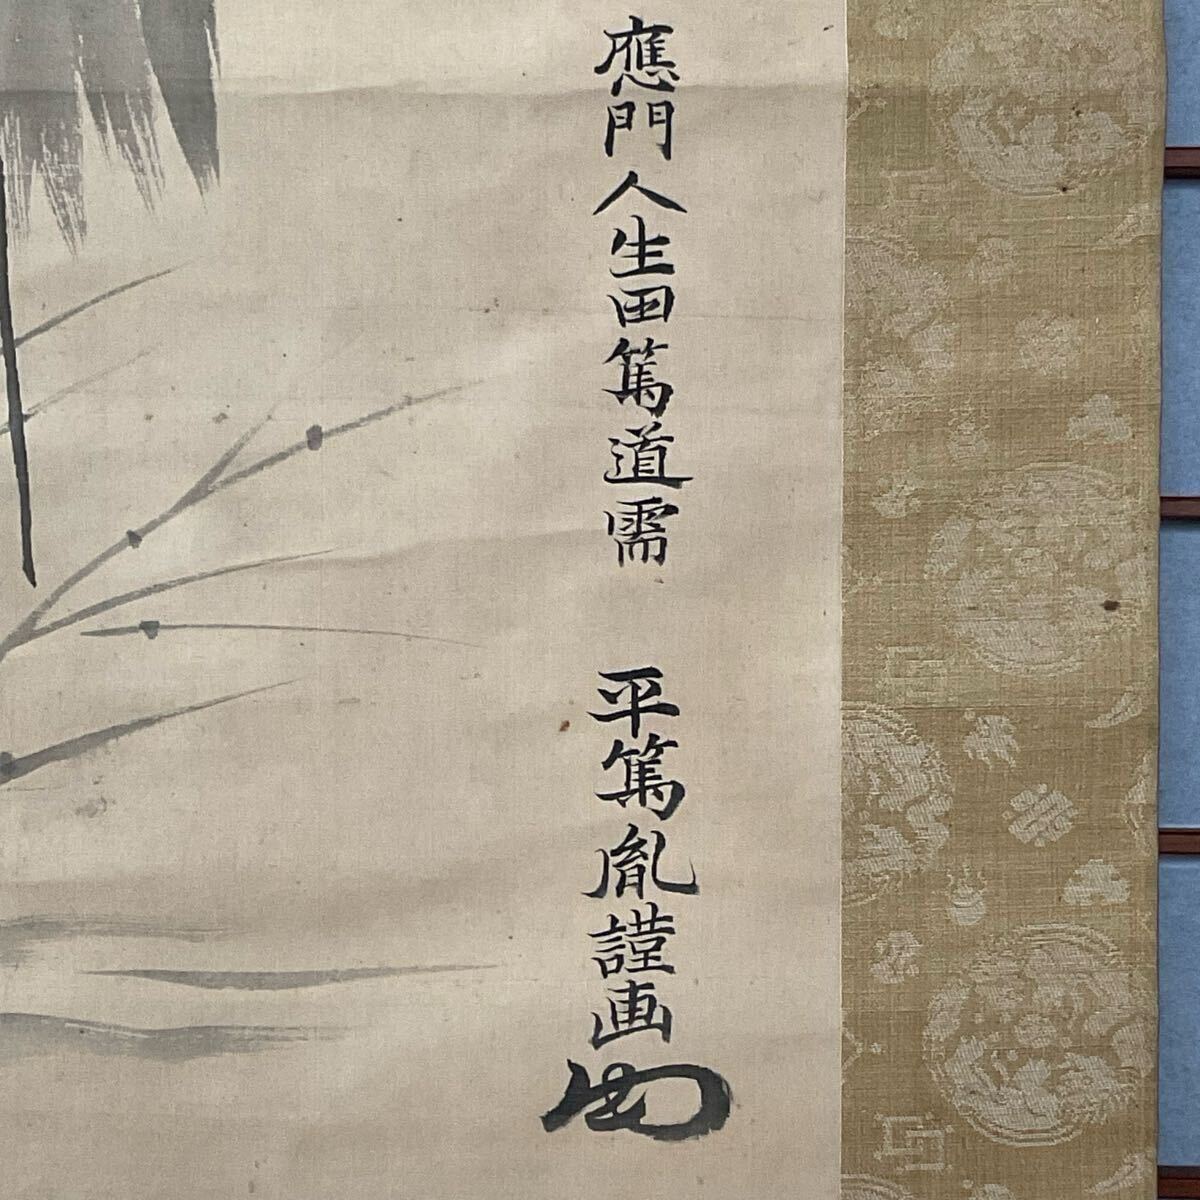 應門人生田篤道需 平篤胤謹画